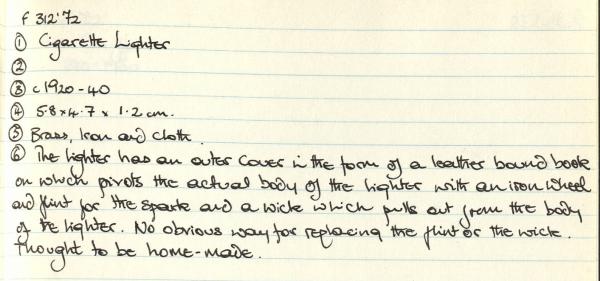 F 312'72
① Cigarette Lighter
②
③ c1920-40
④ 5.8 x 4.7 x 1.2 cm.
⑤ Brass, Iron and Cloth.
⑥ The lighter has an outer cover in the form of a leather bound book
on which pivots the actual body of the lighter with an iron wheel
and flint for the spark and a wick which pulls out from the body
of the lighter. No obvious way for replacing the flint or the wick.
Thought to be home-made.